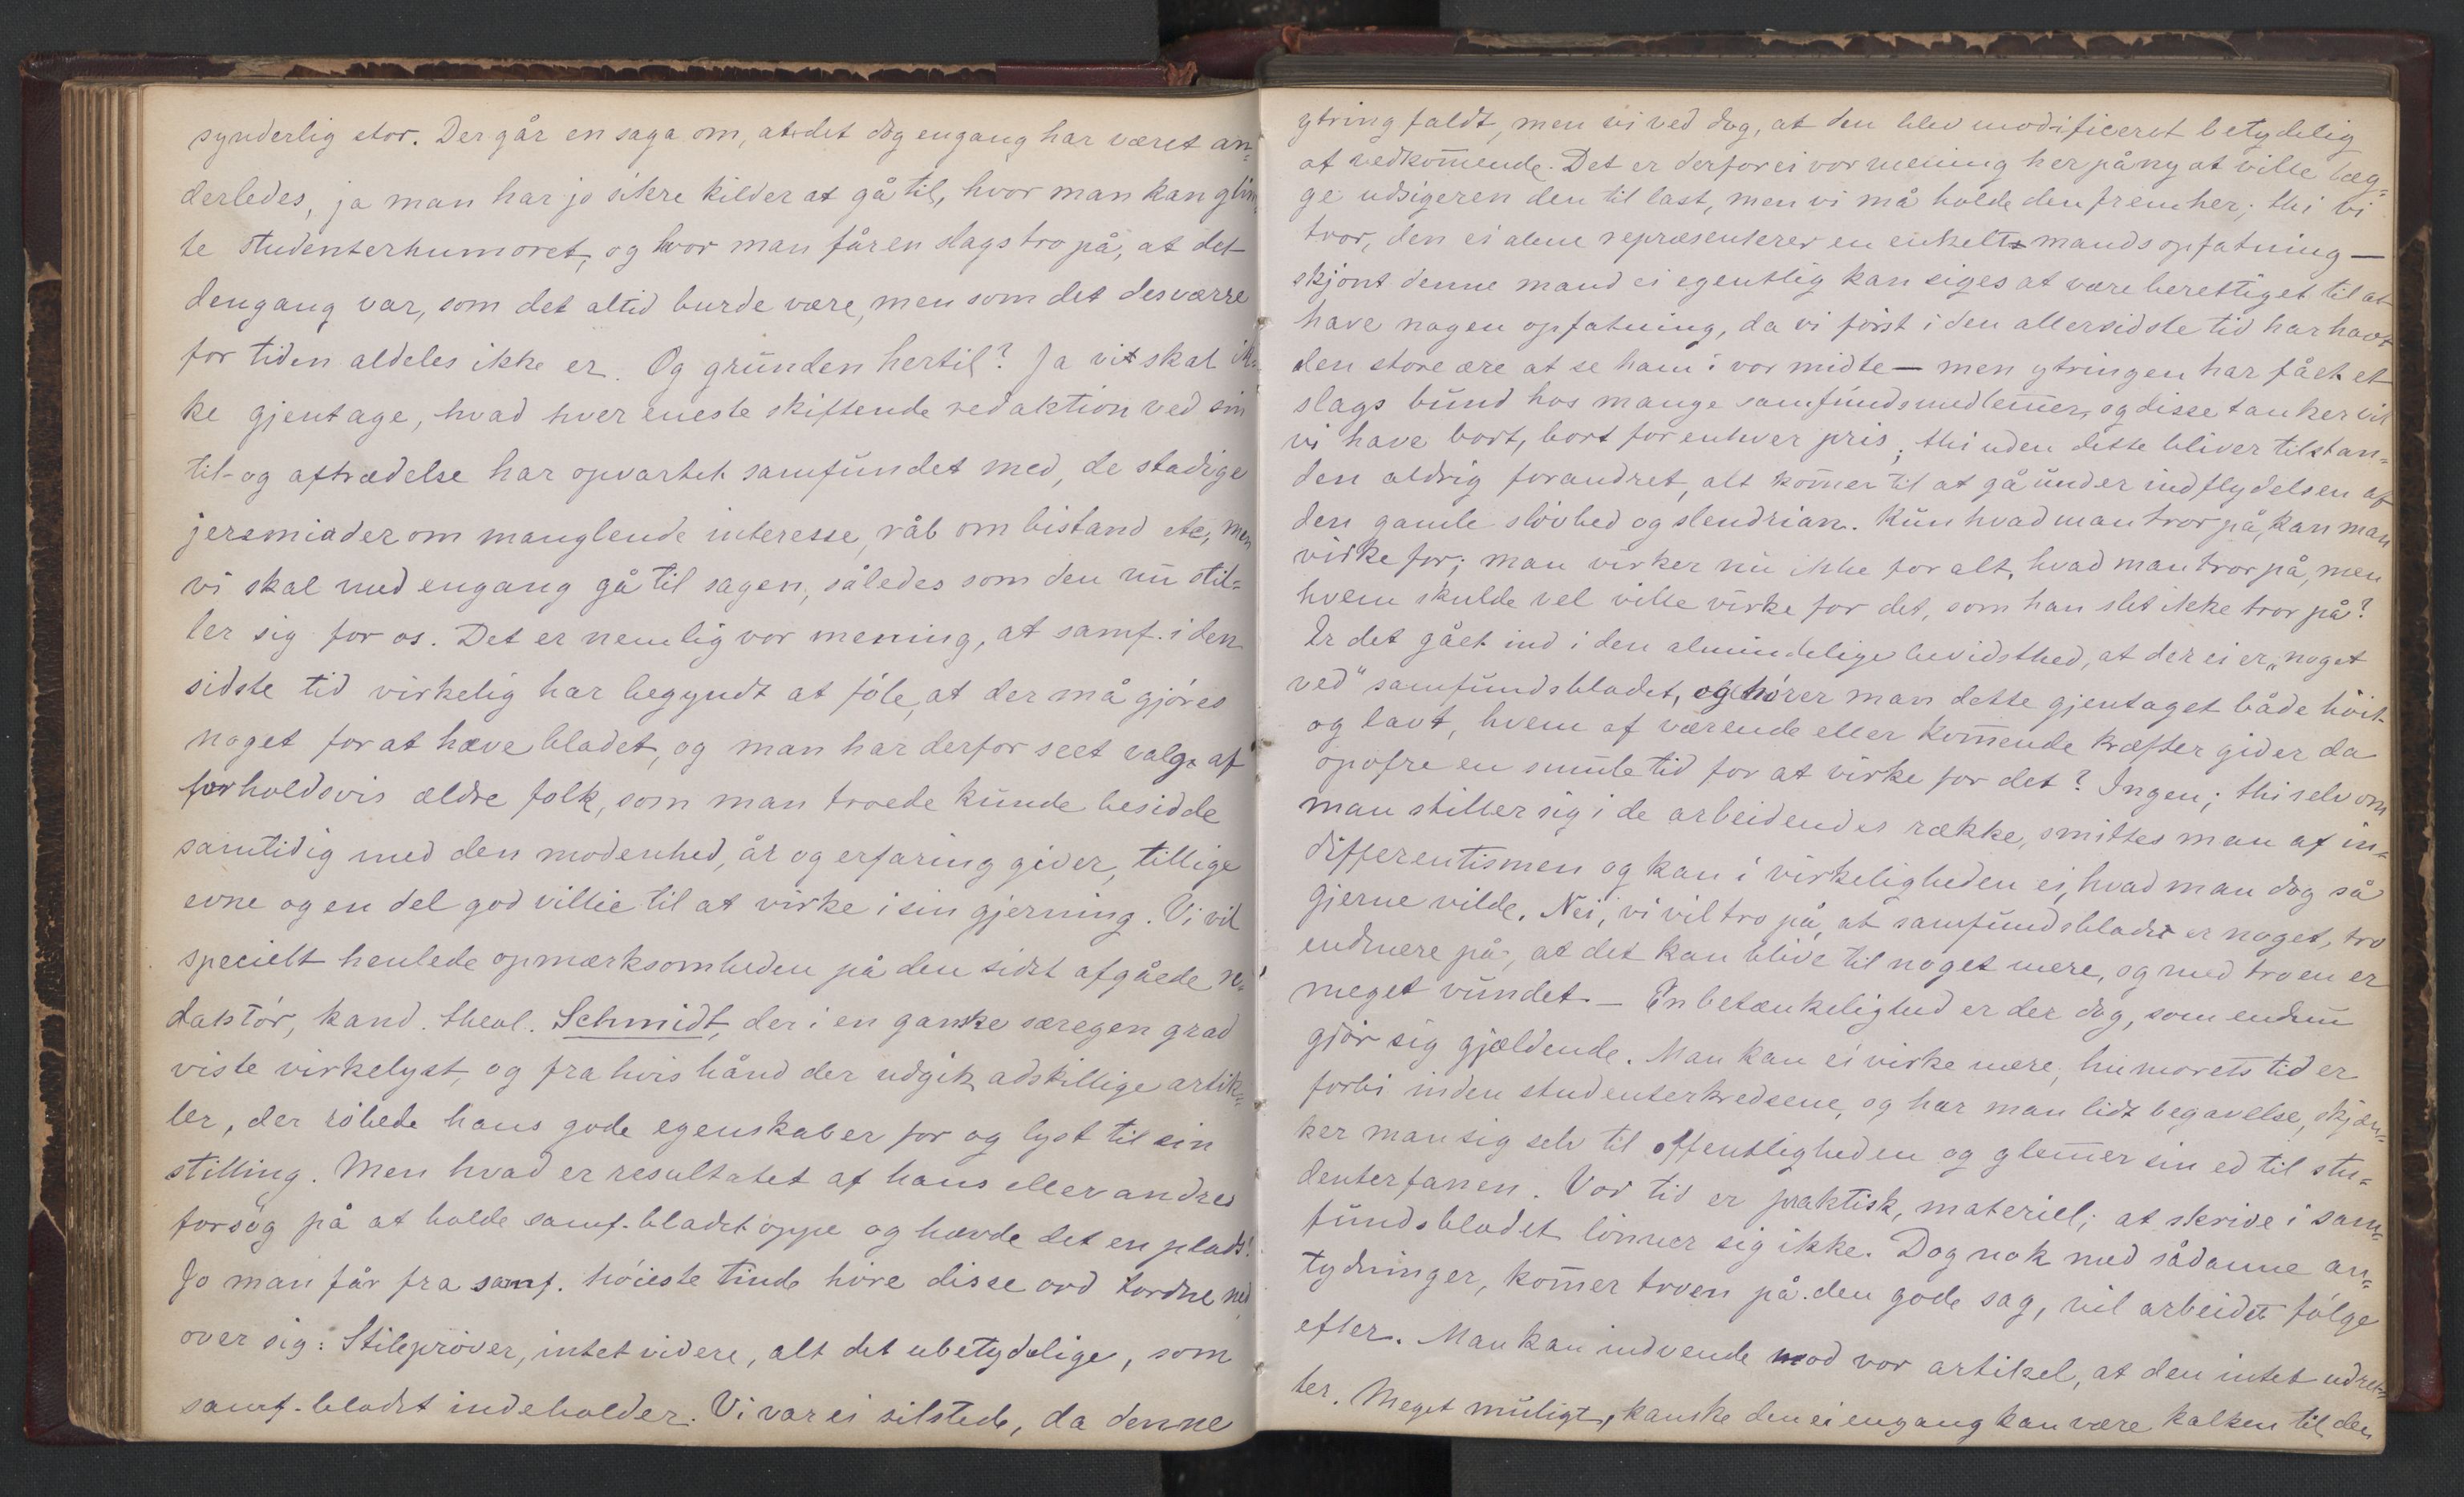 synderlig stor. Der går en saga om, at det dog engang har været an-
derledes, ja man har jo sikre kilder at gå til, hvor man kan glim-
te studenterhumoret, og hvor man får en slags tro på, at det
dengang var, som det altid burde være, men som det desværre
for tiden aldeles ikke er. Og grunden hertil? Ja vi skal ik-
ke gjentage, hvad hver eneste skiftende redaktion ved sin
til- og aftrædelse har opvartet samfundet med, de stadige
jeremiader om manglende interesse, råb om bistand etc; men
vi skal med engang gå til sagen, således som den nu stil-
ler sig for os. Det er nemlig vor mening, at samf. i den
sidste tid virkelig har begyndt at føle, at der må gjöres
noget for at hæve bladet, og man har derfor seet valg af
forholdsvis ældre folk, som man troede kunde besidde
samtidig med den modenhed, år og erfaring giver, tillige
evne og en del god villie til at virke i sin gjerning. Vi vil
specielt henlede opmærksomheden på den sidst afgåede re-
daktör, kand. theol. Schmidt, der i en ganske særegen grad
viste virkelyst, og fra hvis hånd der udgik adskillige artik-
ler, der röbede hans gode egenskaber for og lyst til sin
stilling. Men hvad er resultatet af hans eller andres
forsög på at holde samf-bladet oppe og hævde det en plads?
Jo man får fra samf. höieste tinde höre disse ord tordne ned
over sig: Stilepröver, intet videre, alt det ubetydelige, som
samf-bladet indeholder. Vi var ei tilstede, da denne
ytring faldt, men vi ved dog, at den blev modificeret betydelig
af vedkom̄ende. Det er derfor ei vor mening her påny at ville læg-
ge udsigeren den til last, men vi må holde den frem her; thi vi
tror, den ei alene repræsenterer en enkelt mands opfatning —
skjönt denne mand ei egentlig kan siges at være berettiget til at
have nogen opfatning, da vi först i den allersidste tid har havt
den store ære at se ham i vor midte — men ytringen har fået et
slags bund hos mange samfundsmedlem̄er, og disse tanker vil
vi have bort, bort for enhver pris; thi uden dette bliver tilstan-
den aldrig forandret, alt kom̄er til at gå under indflydelsen af
den gamle slövhed og slendrian. Kun hvad man tror på, kan man
virke for; man virker nu ikke for alt, hvad man tror på, men
hvem skulde vel ville virke for det, som han slet ikke tror på?
Er det gået ind i den almindelige bevidsthed, at der ei er „noget
ved" samfundsbladet, og hörer man dette gjentaget både höit
og lavt, hvem af værende eller kom̄ende kræfter gider da
opofre en smule tid for at virke for det? Ingen; thi selv om
man stiller sig i de arbeidendes række, smittes man af in-
differentismen og kan i virkeligheden ei, hvad man dog så
gjerne vilde. Nei, vi vil tro på, at samfundsbladet er noget, tro
endmere på, at det kan blive til noget mere, og med troen er
meget vundet. — En betænkelighed er der dog, som endnu
gjör sig gjældende. Man kan ei virke mere, humorets tid er
forbi inden studenterkredsene, og har man lidt begavelse, skjæn-
ker man sig selv til offentligheden og glem̄er sin ed til stu-
denterfanen. Vor tid er praktisk, materiel; at skrive i sam-
fundsbladet lönner sig ikke. Dog nok med sådanne an-
tydninger, kom̄er troen på den gode sag, vil arbeidet fölge
efter. Man kan indvende mod vor artikel, at den intet udret-
ter. Meget muligt, kanske den ei engang kan være kalken til den